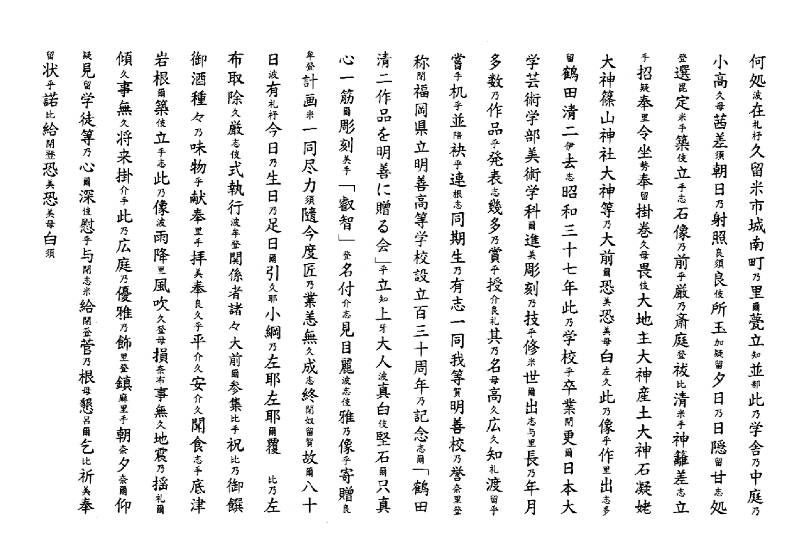 何処波在礼杼久留米市城南町乃里爾甍立知並部此乃学舎乃中庭乃
小高久母茜差須朝日乃射照良須良伎所玉加疑留夕日乃日隠留甘志処
登選毘定米手築伎立手志石像乃前乎厳乃斎庭登祓比清米手神籬差志立
手招疑奉里令坐勢奉留掛巻久母畏伎大地主大神産土大神石凝姥
大神篠山神社大神等乃大前爾恐美恐美母白左久此乃像乎作里出志多
留鶴田清二伊去志昭和三十七年此乃学校乎卒業閇更爾日本大
学芸術学部美術学科爾進美彫刻乃技乎修米世爾出志与里長乃年月
多数乃作品乎発表志幾多乃賞乎授介良礼其乃名母高久広久知礼渡留乎
嘗乎机乎並陪袂乎連根志同期生乃有志一同我等賀明善校乃誉奈里登
称閇福岡県立明善高等学校設立百三十周年乃記念志爾「鶴田
清二作品を明善に贈る会」乎立知上牙大人波真白伎堅石爾只真
心一筋爾彫刻美手「叡智」登名付介志見目麗波志伎雅乃像乎寄贈良
牟登計画米一同尽力須随今度匠乃業恙無久成志終閇奴留賀故爾八十
日波有礼杼今日乃生日乃足日爾引久耶小綱乃左耶左耶爾覆比乃左
布取除久厳志伎式執行波牟登関係者諸々大前爾参集比手祝比乃御饌
御酒種々乃味物乎献奉里手拝美奉良久乎平介久安介久聞食志手底津
岩根爾築伎立手志此乃像波雨降里風吹久登母損奈布事無久地震乃揺礼爾
傾久事無久将来掛介手此乃広庭乃優雅乃飾里登鎮麻里手朝奈夕奈爾仰
疑見留学徒等乃心爾深伎慰乎与閇志米給閇登菅乃根母懇呂爾乞比祈美奉
留状乎諾比給閇登恐美恐美母白須